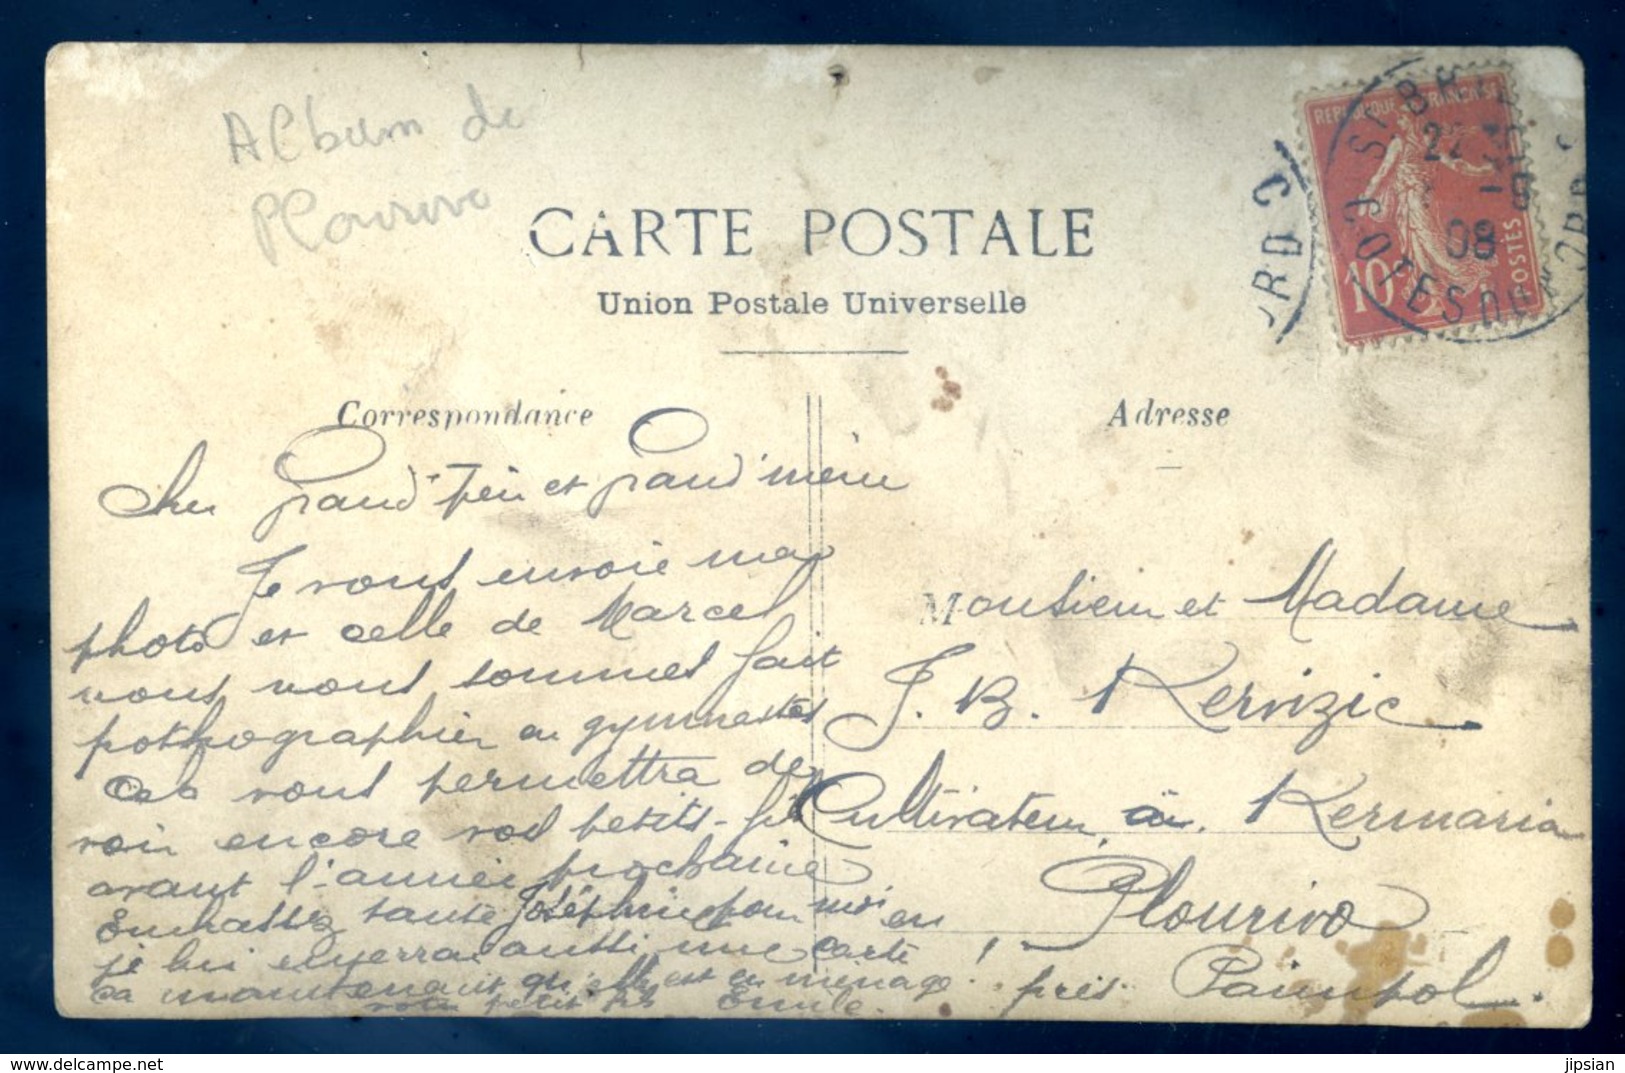 Album de
Plourivo
CARTE POSTALE
Union Postale Universelle
Correspondance
Adresse
REPUBLIQUE FRANÇAISE
10c
POSTES
ST BRIEUC
08
COTES DU NORD
Cher Grand'Père et Grand'mère
Je vous envoie ma
photo et celle de Marcel
nous nous sommes fait
pothrographier en gymnastes
Cela vous permettra de
voir encore vos petits-fils
avant l'année prochaine
Embrassez tante Joséphine pour moi
je lui enverrai aussi une carte
maintenant qu'elle est en ménage.
votre petit fils Emile.
Monsieur et Madame
J. B. Kervizic
Cultivateur à Kermaria
en Plourivo
près Paimpol.
delcampe.net
jipsian